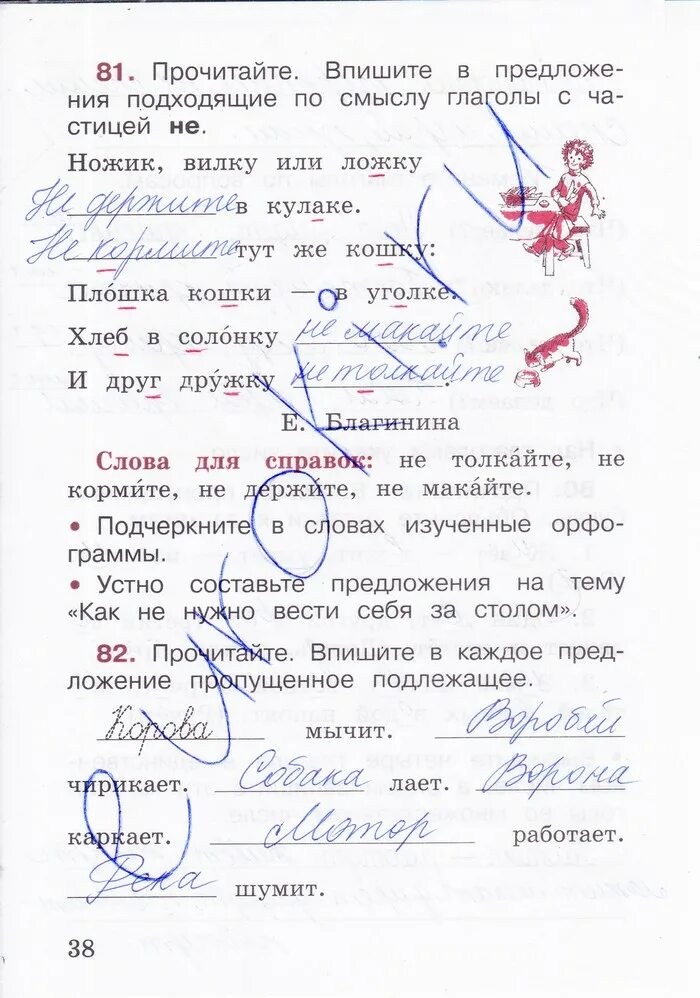 81. Прочитайте. Впишите в предложе-
ния подходящие по смыслу глаголы с ча-
стицей не.
Ножик, вилку или ложку
Не держите в кулаке.
Не кормите тут же кошку:
Плошка кошки — в уголке.
Хлеб в соло́нку не макайте
И друг дру́жку не толкайте.
Е. Благинина
Слова для справок: не толка́йте, не
корми́те, не держи́те, не мака́йте.
• Подчеркните в словах изученные орфо-
граммы.
• Устно составьте предложения на тему
«Как не нужно вести себя за столом».
82. Прочитайте. Впишите в каждое пред-
ложение пропущенное подлежащее.
Корова мычит. Воробей
чирикает. Собака лает. Ворона
каркает. Мотор работает.
Река шумит.
38